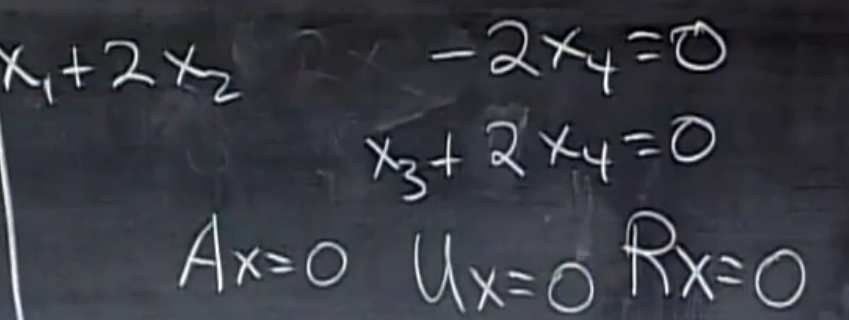 x₁+2x₂ -2x₄=0
x₃+2x₄=0
Ax=0 Ux=0 Rx=0